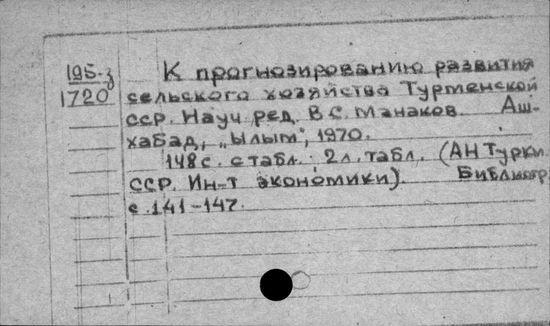 195-3 К прогнозированию развития
1720 сельского хозяйства Туркменской
ССР. Науч. ред. В.С. Манаков. Аш-
хабад, „Ылым", 1970.
148 с. с табл.; 2 л. табл. (АН Туркм.
ССР. Ин-т экономики). Библиогр.:
с. 141-147.